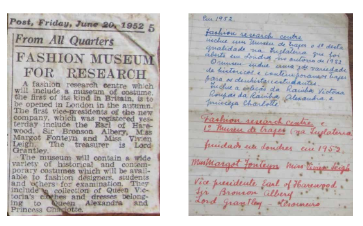 Post, Friday, June 20, 1952 5
From All Quarters
FASHION MUSEUM
FOR RESEARCH
A fashion research centre, which
will include a museum of costume
the first of its kind in Britain, is to
be opened in London in the autumn.
The first vice-presidents of the new
company, which was registered yes-
terday include the Earl of Hare-
wood, Sir Bronson Albery, Miss
Margot Fonteyn and Miss Vivien
Leigh. The treasurer is Lord
Grantley.
The museum will contain a wide
variety of historical and contem-
porary costumes which will be avail-
able to fashion designers, students
and others for examination. They
include a collection of Queen Vic-
toria's and dresses belong-
ing to Queen Alexandra and
Princess Charlotte.
Em 1952
fashion research centre
um Museu de trajes o 1º desta
qualidade na Inglaterra que
aberto em Londres no outono de 1952
variedade
de historicos e contemporaneos trajes
para os
da Rainha Victoria
da Rainha Alexandra e
princeza Charlotte
Fashion research centre
1º Museu de trajes na Inglaterra
em Londres em 1952.
Miss Margot Fonteyn Miss Leigh
Vice presidents Earl of Harewood
Sir Bronson Albery
Lord Grantley